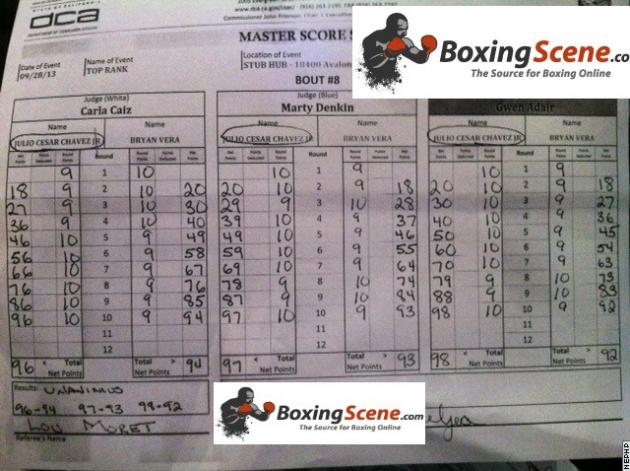 STATE OF CALIFORNIA
dca
DEPARTMENT OF CONSUMER AFFAIRS
MASTER SCORE S
BoxingScene.com
The Source for Boxing Online
Date of Event
09/28/13
Name of Event
TOP RANK
Location of Event
STUB HUB - 18400 Avalon
BOUT #8
Judge (White)
Carla Caiz
Judge (Blue)
Marty Denkin
Gwen Adair
Name Name Name Name Name Name
JULIO CESAR CHAVEZ JR BRYAN VERA JULIO CESAR CHAVEZ JR BRYAN VERA JULIO CESAR CHAVEZ JR BRYAN VERA
Net Points Points Deducted Round Points Round Round Points Points Deducted Net Points Net Points Points Deducted Round Points Round Round Points Points Deducted Net Points Net Points Points Deducted Round Points Round Round Points Points Deducted Net Points
9 1 10 10 1 9 10 1 9
18 9 2 10 20 20 10 2 9 18 20 10 2 9 18
27 9 3 10 30 29 9 3 10 28 30 10 3 9 27
36 9 4 10 40 39 10 4 9 37 40 10 4 9 36
46 10 5 9 49 49 10 5 9 46 50 10 5 9 45
56 10 6 9 58 59 10 6 9 55 60 10 6 9 54
66 10 7 9 67 69 10 7 9 64 70 10 7 9 63
76 10 8 9 76 78 9 8 10 74 79 9 8 10 73
86 10 9 9 85 87 9 9 10 84 88 9 9 10 83
96 10 10 9 94 97 10 10 9 93 98 10 10 9 92
11 11 11
12 12 12
96 < Total Net Points Total > Net Points 94 97 < Total Net Points Total > Net Points 93 98 < Total Net Points Total > Net Points 92
Results: UNANIMUS
96-94 97-93 98-92
LOU MORET
Referee's Name
BoxingScene.com
The Source for Boxing Online
NEPHP